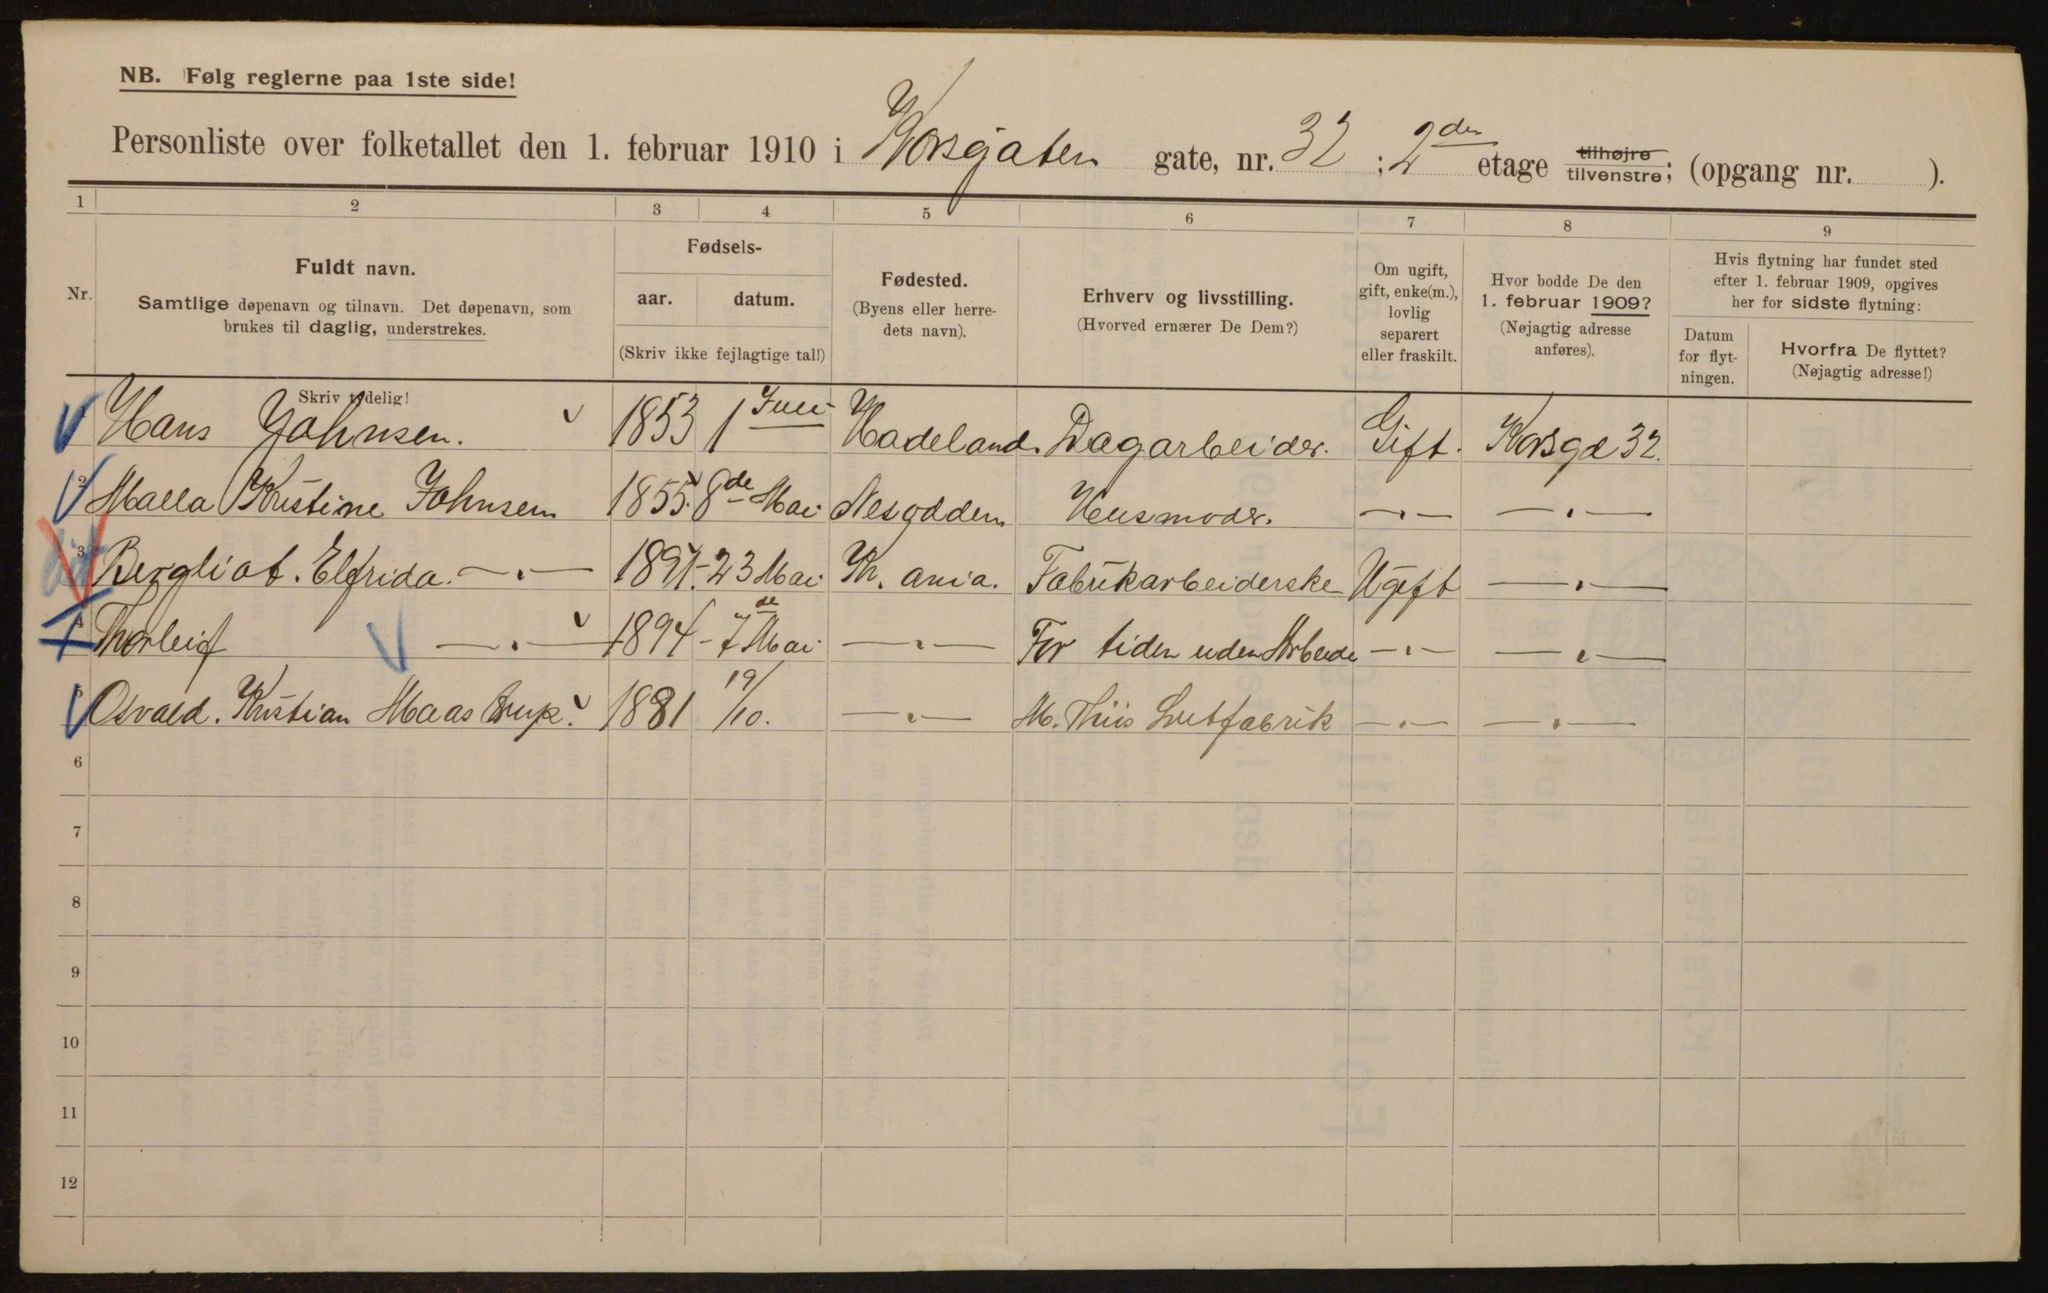 NB. Følg reglerne paa 1ste side!
Personliste over folketallet den 1. februar 1910 i Korsgaten gate, nr. 32 ; 2den etage tilhøjre tilvenstre; (opgang nr. ).
1 2 3 4 5 6 7 8 9
Nr.
Fuldt navn.
Samtlige døpenavn og tilnavn. Det døpenavn, som
brukes til daglig, understrekes.
Skriv tydelig!
Fødsels-
aar. datum.
(Skriv ikke fejlagtige tal!)
Fødested.
(Byens eller herre-
dets navn).
Erhverv og livsstilling.
(Hvorved ernærer De Dem?)
Om ugift,
gift, enke(m.),
lovlig
separert
eller fraskilt.
Hvor bodde De den
1. februar 1909?
(Nøjagtig adresse
anføres).
Hvis flytning har fundet sted
efter 1. februar 1909, opgives
her for sidste flytning:
Datum
for flyt-
ningen.
Hvorfra De flyttet?
(Nøjagtig adresse!)
Hans Johnsen. 1853 1 Juli Hadeland. Dagarbeider. Gift. Korsgd 32.
2 Malla Kristine Johnsen 1855. 8de Mai Nesodden Husmoder. —〃— —〃—
3 Bergliot. Elfrida. —〃— 1891. - 23 Mai Kr. ania. Fabrikarbeiderske Ugift —〃—
4 Thorleif —〃— 1894 - 7de Mai —〃— For tiden uden Arbeide —〃— —〃—
5 Osvald. Kristian Maastrup. 1881 19/10. —〃— M. Thiis Lutfabrik —〃— —〃—
6
7
8
9
10
11
12